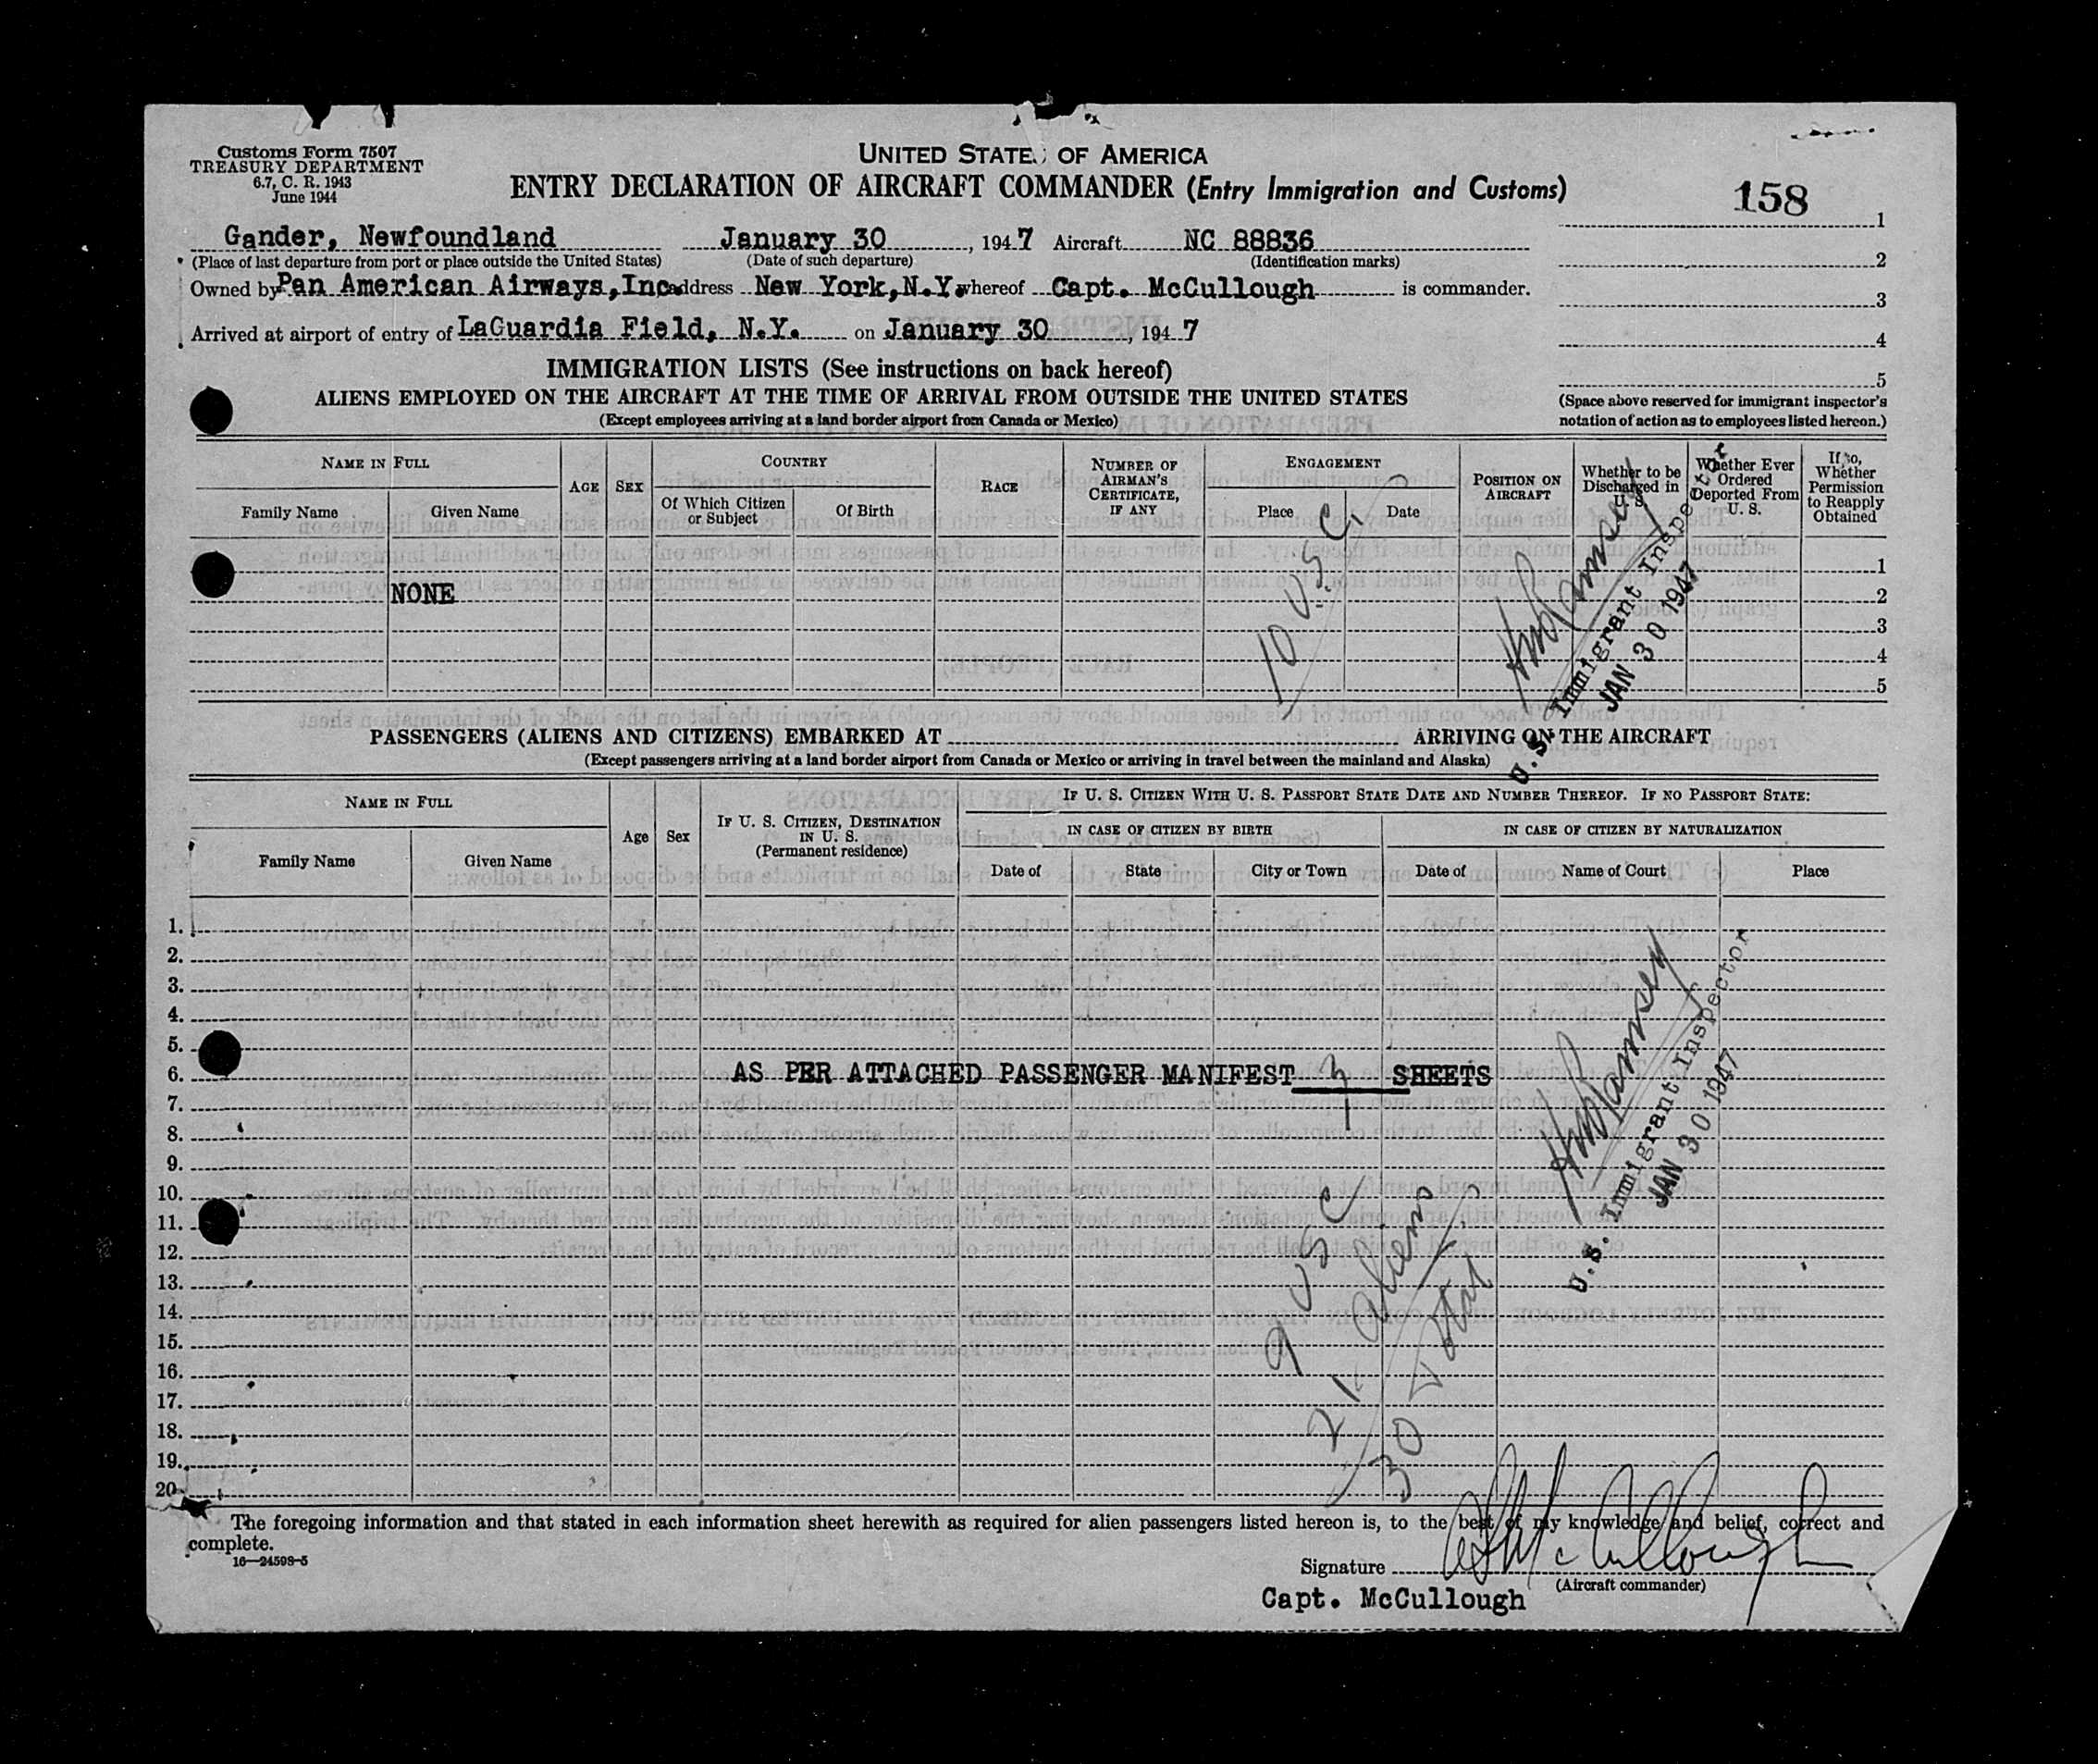 Customs Form 7507
TREASURY DEPARTMENT
6.7, C. R. 1943
June 1944
UNITED STATE OF AMERICA
ENTRY DECLARATION OF AIRCRAFT COMMANDER (Entry Immigration and Customs)
158
Gander, Newfoundland January 30, 1947 Aircraft NC 88836
(Place of last departure from port or place outside the United States) (Date of such departure) (Identification marks)
Owned by Pan American Airways, Inc. address New York, N.Y. whereof Capt. McCullough is commander.
Arrived at airport of entry of LaGuardia Field, N.Y. on January 30, 1947
1
2
3
4
5
(Space above reserved for immigrant inspector's
notation of action as to employees listed hereon.)
IMMIGRATION LISTS (See instructions on back hereof)
ALIENS EMPLOYED ON THE AIRCRAFT AT THE TIME OF ARRIVAL FROM OUTSIDE THE UNITED STATES
(Except employees arriving at a land border airport from Canada or Mexico)
NAME IN FULL
Family Name
Given Name
AGE
SEX
COUNTRY
Of Which Citizen or Subject
Of Birth
RACE
NUMBER OF AIRMAN'S CERTIFICATE, IF ANY
ENGAGEMENT
Place
Date
POSITION ON AIRCRAFT
Whether to be Discharged in U. S.
Whether Ever Ordered Deported From U. S.
If so, Whether Permission to Reapply Obtained
1
NONE 2
3
4
5
10 U.S.C.
U.S. Immigrant Inspector
JAN 30 1947
PASSENGERS (ALIENS AND CITIZENS) EMBARKED AT ARRIVING ON THE AIRCRAFT
(Except passengers arriving at a land border airport from Canada or Mexico or arriving in travel between the mainland and Alaska)
NAME IN FULL
Family Name
Given Name
Age
Sex
IF U. S. CITIZEN, DESTINATION IN U. S.
(Permanent residence)
IF U. S. CITIZEN WITH U. S. PASSPORT STATE DATE AND NUMBER THEREOF. IF NO PASSPORT STATE:
IN CASE OF CITIZEN BY BIRTH
Date of
State
City or Town
IN CASE OF CITIZEN BY NATURALIZATION
Date of
Name of Court
Place
1.
2.
3.
4.
5.
6. AS PER ATTACHED PASSENGER MANIFEST 3 SHEETS
7.
8.
9.
10.
11.
12.
13.
14.
15.
16.
17.
18.
19.
20.
9 USC
21 Aliens
30 total
U.S. Immigrant Inspector
JAN 30 1947
The foregoing information and that stated in each information sheet herewith as required for alien passengers listed hereon is, to the best of my knowledge and belief, correct and
complete.
16—24598-5
Signature McCullough
(Aircraft commander)
Capt. McCullough